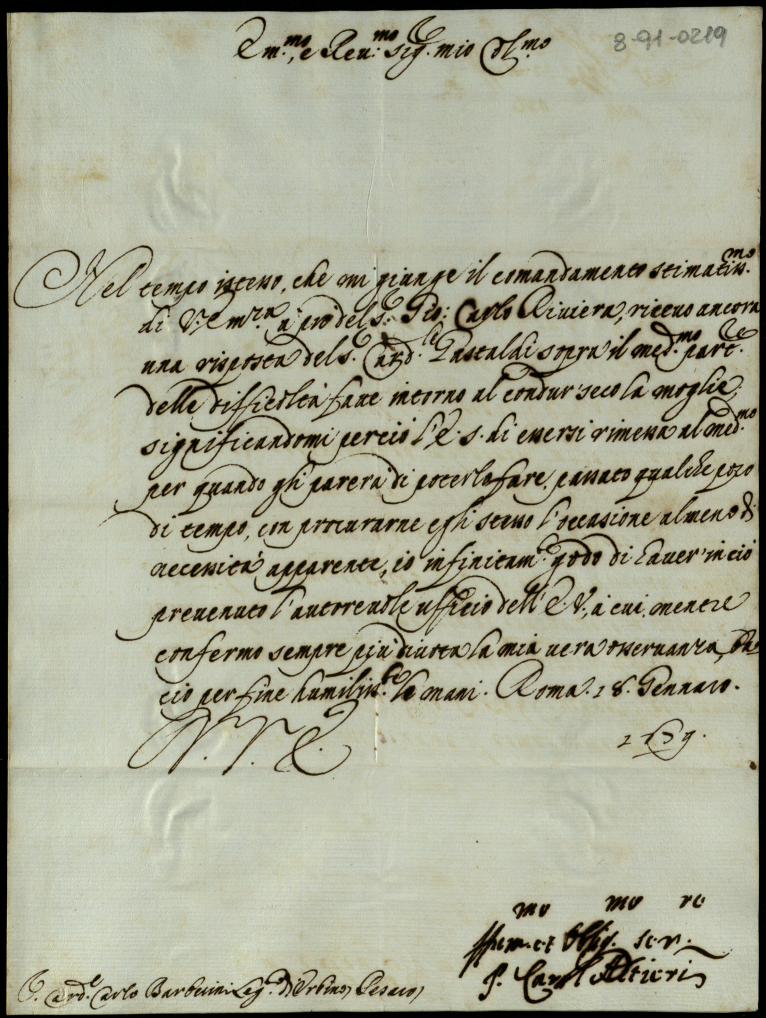 8-91-0219
Em.mo e Reu.mo Sig.r mio
Nel tempo istesso, che mi giunge il comandamento stimatiss.mo
di V. Em.za à prò del S.r Gio: Carlo Riuiera, riceuo ancora
una risposta del S.r Card.le Gastaldi sopra il med.mo part.re
delle difficoltà fatte intorno al condur seco la moglie;
significandomi perciò l'E. S. di essersi rimessa al med.mo
per quando gli parerà di poterlo fare, passato qualche poco
di tempo, con procurarne egli stesso l'occasione almeno di
necessità apparente, io infinitam.te godo di hauer in ciò
preuenuto l'autoreuole ufficio dell'E. V., à cui, mentre
confermo sempre più diuota la mia uera osseruanza, ba-
cio per fine humiliss.te le mani. Roma. 18. Gennaro.
V. E.
et Oblig.mo ser.re
Altieri
Card.le Carlo Barberini Leg.o d'Urbino Pesaro